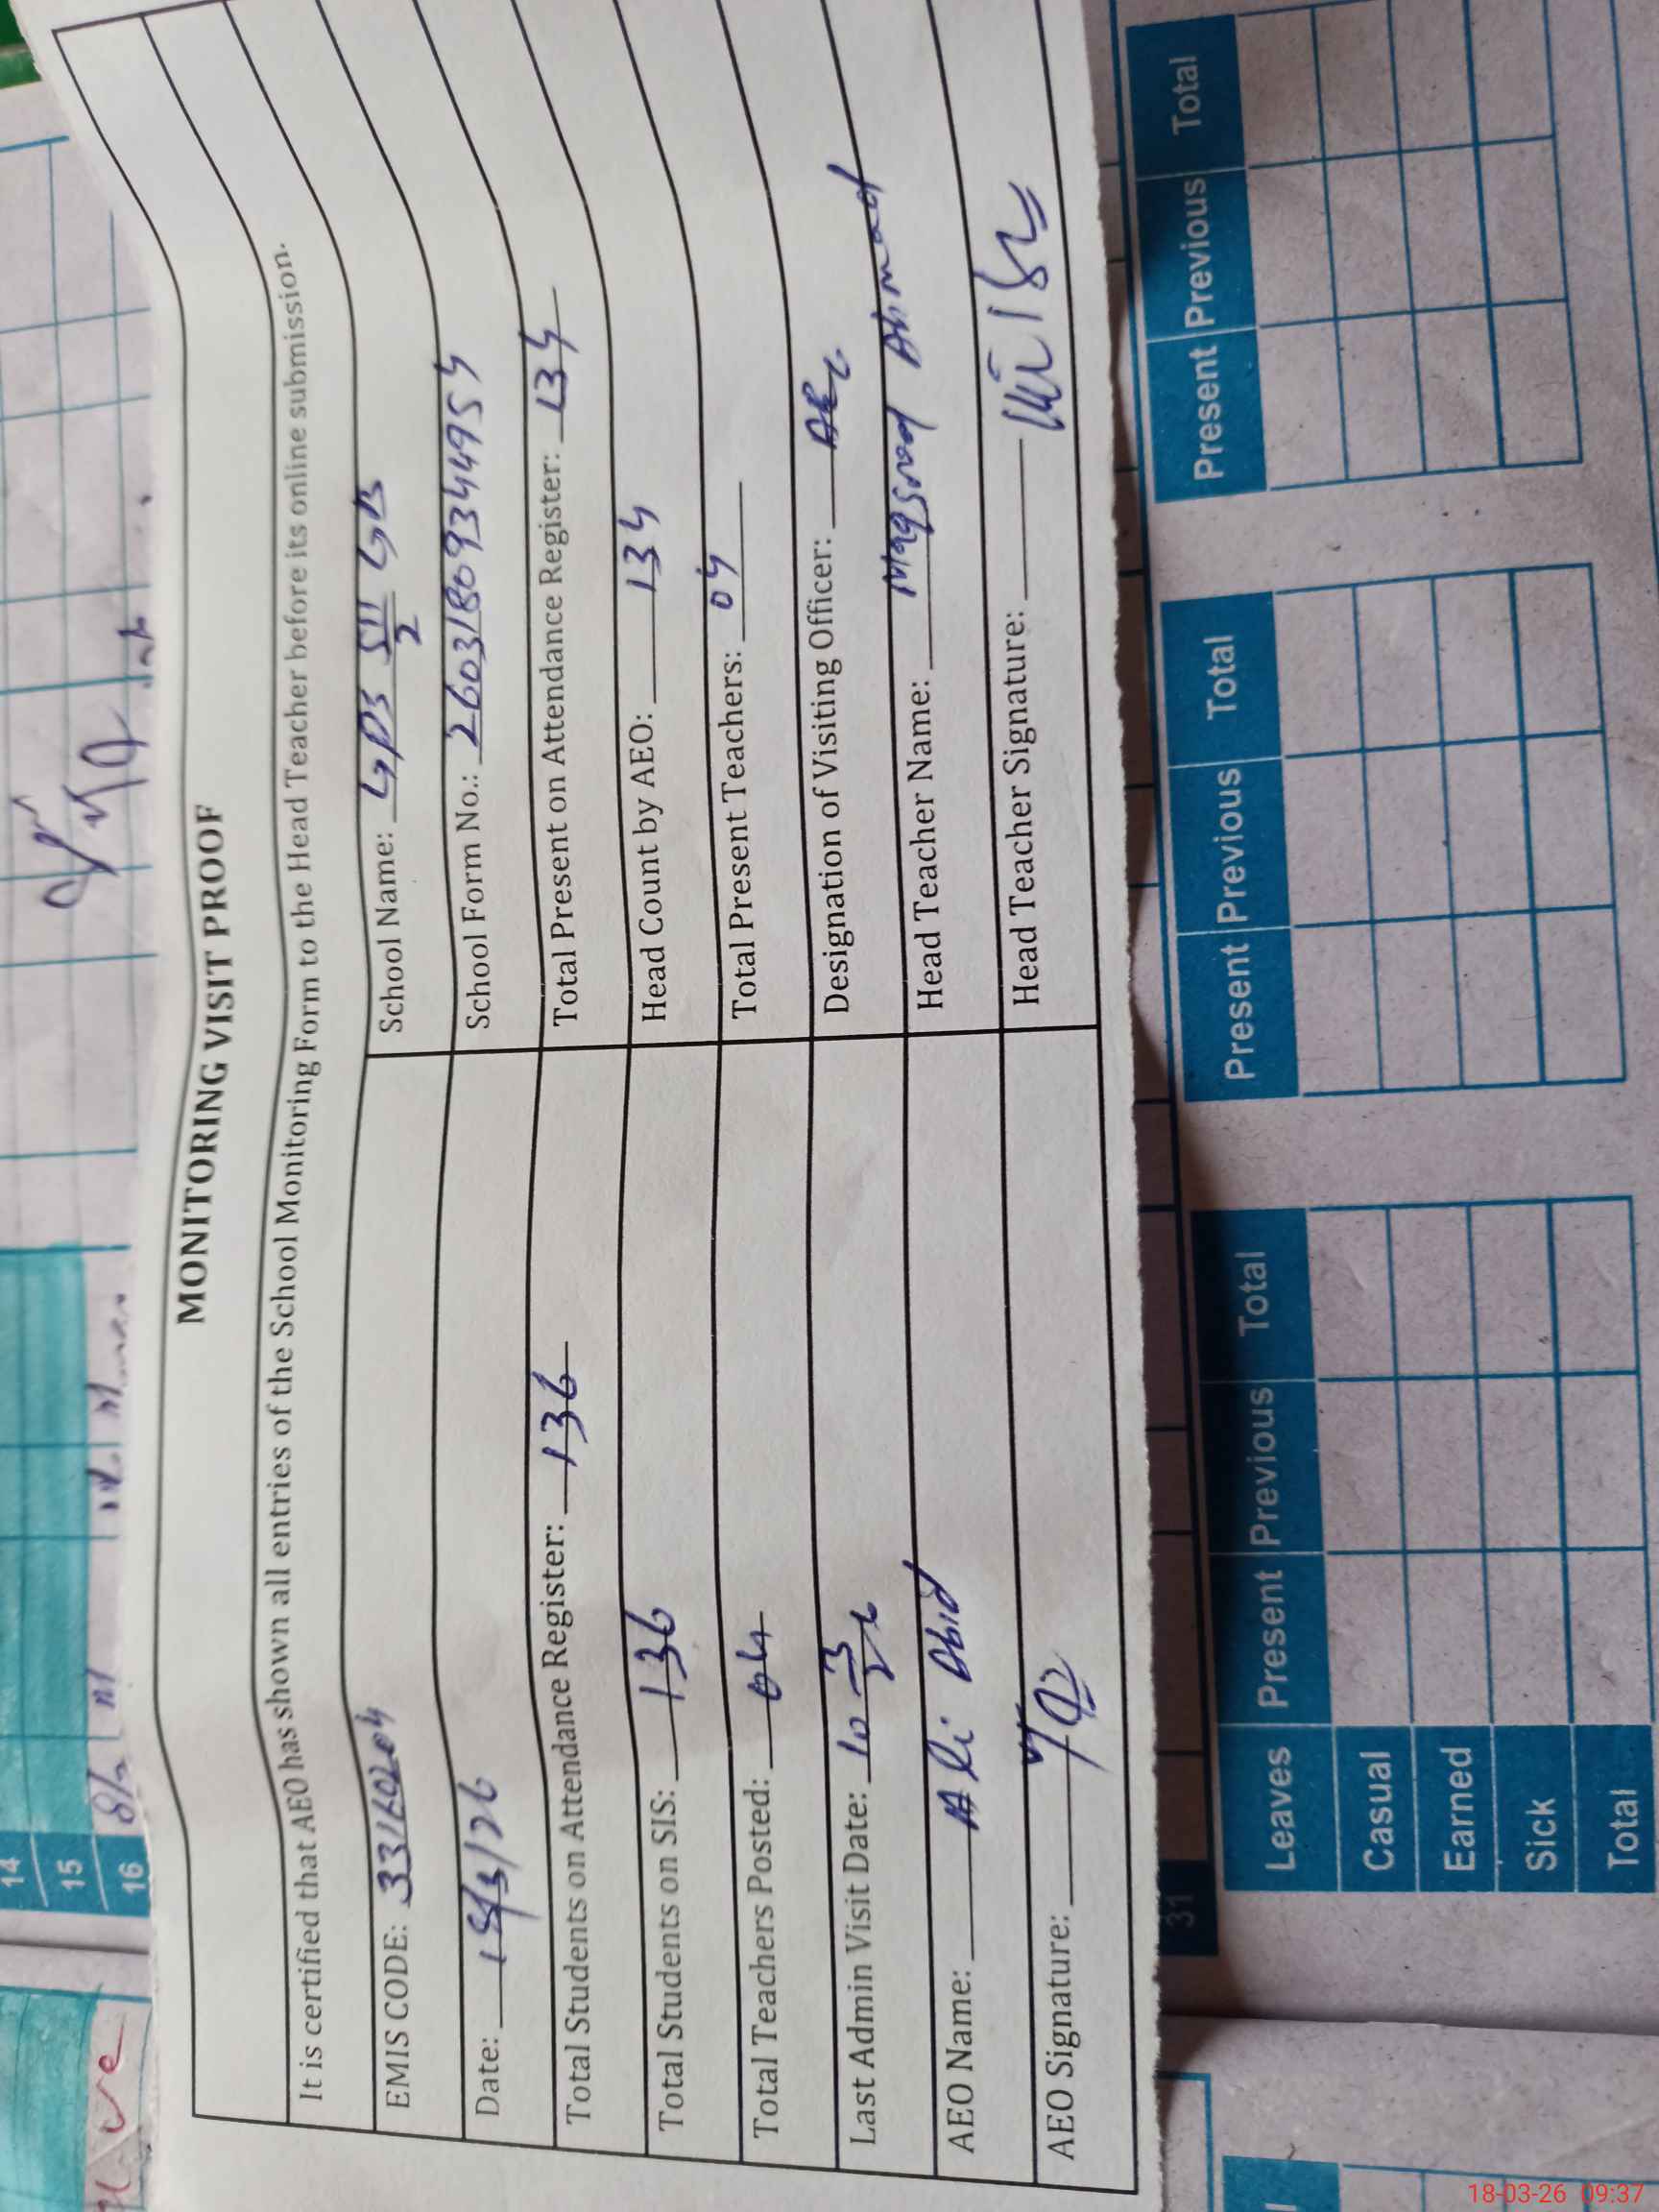 14
15
16
ve
MONITORING VISIT PROOF
It is certified that AEO has shown all entries of the School Monitoring Form to the Head Teacher before its online submission.
EMIS CODE: 33160204 School Name: GPS 511/2 GB
Date: 18/3/26 School Form No.: 26031809344954
Total Students on Attendance Register: 136 Total Present on Attendance Register: 134
Total Students on SIS: 136 Head Count by AEO: 134
Total Teachers Posted: 04 Total Present Teachers: 04
Last Admin Visit Date: 10 3/26 Designation of Visiting Officer:
AEO Name: Ali Abid Head Teacher Name: Maqsood Ahmad
AEO Signature: Head Teacher Signature:
31
Leaves Present Previous Total Present Previous Total Present Previous Total
Casual
Earned
Sick
Total
18-03-26 09:37